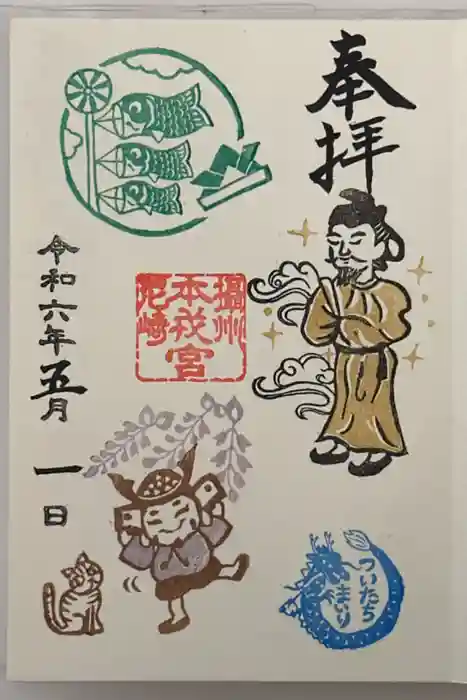 奉拝
攝州
本戎宮
尼崎
令和六年五月一日
ついたち
まいり